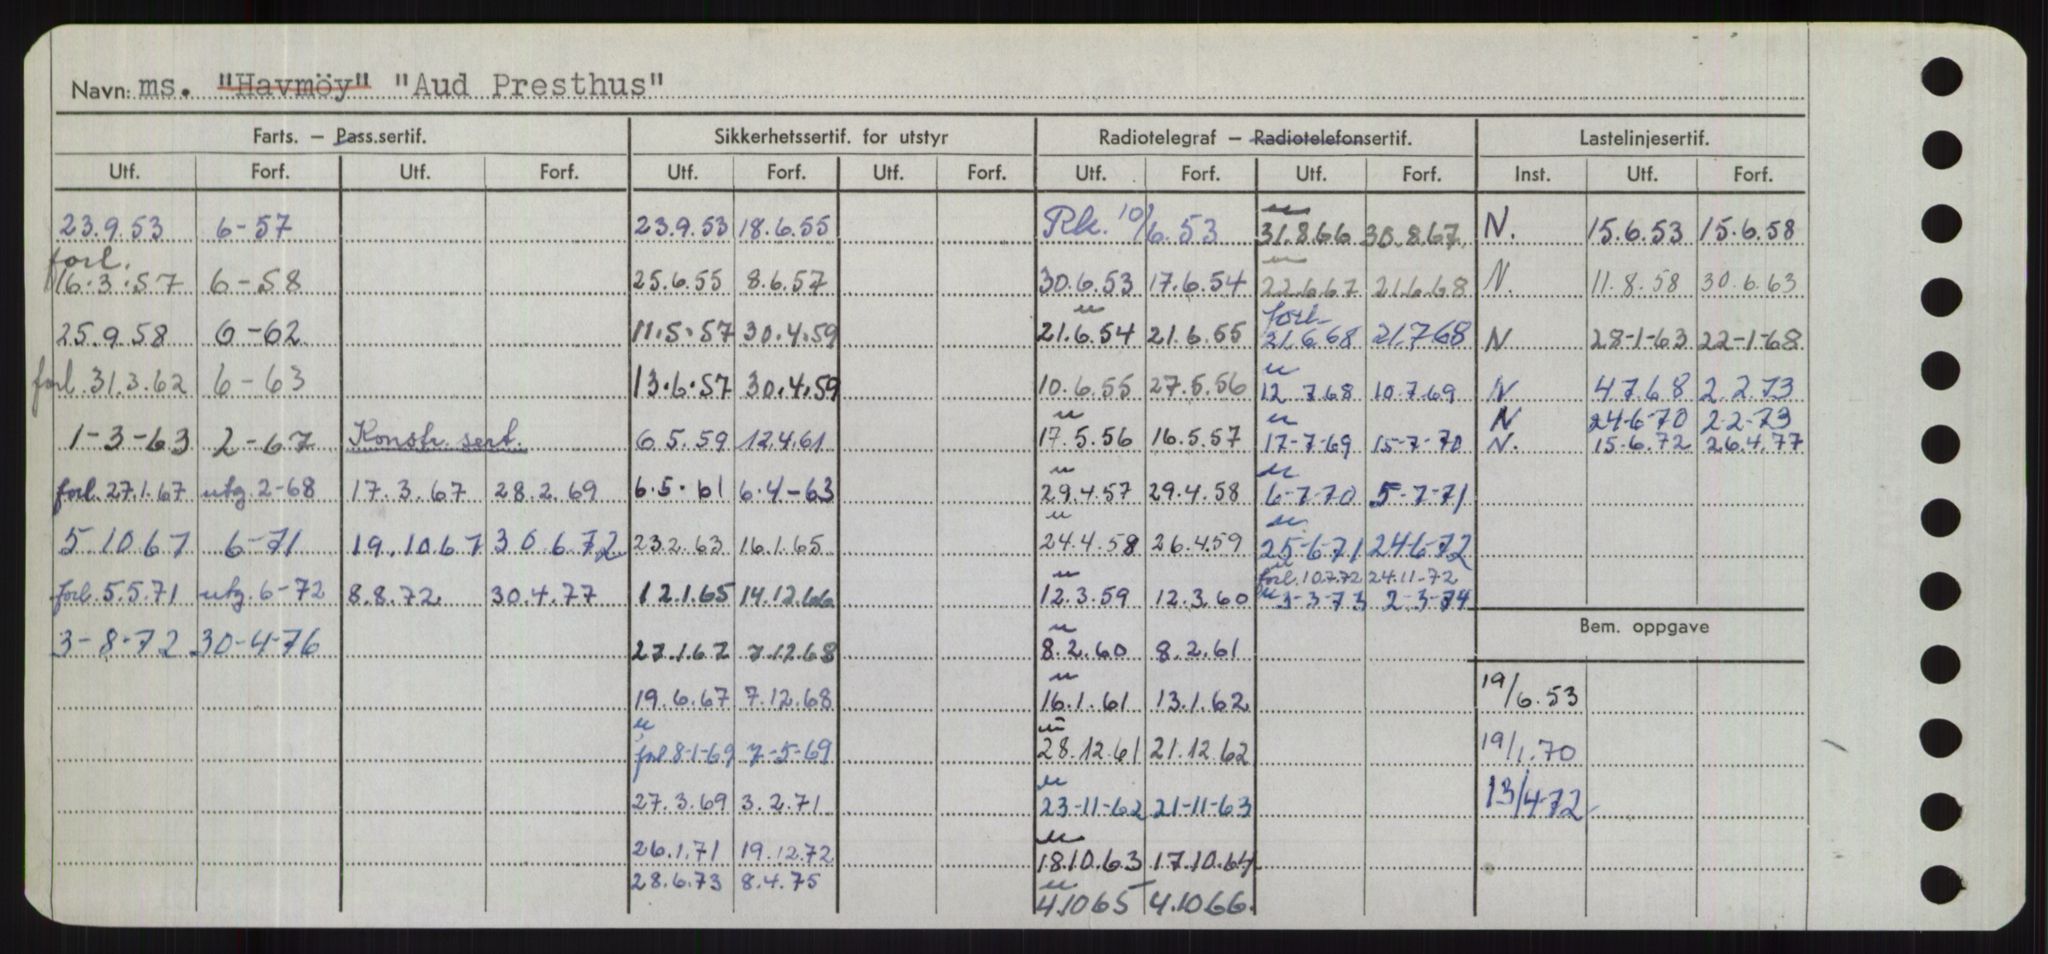 Navn: ms. "Havmöy" "Aud Presthus"
Farts. — Pass.sertif. Sikkerhetssertif. for utstyr Radiotelegraf — Radiotelefonsertif. Lastelinjesertif.
Utf. Forf. Utf. Forf. Utf. Forf. Utf. Forf. Utf. Forf. Utf. Forf. Inst. Utf. Forf.
23.9.53 6-57 23.9.53 18.6.55 Rk. 10/6.53 u 31.8.66 30.8.67 N. 15.6.53 15.6.58
forl. 16.3.57 6-58 25.6.55 8.6.57 30.6.53 17.6.54 u 22.6.67 21.6.68 N. 11.8.58 30.6.63
25.9.58 6-62 11.5.57 30.4.59 u 21.6.54 21.6.55 forl. 21.6.68 21.7.68 N 28-1-63 22-1-68
forl. 31.3.62 6-63 13.6.57 30.4.59 10.6.55 27.5.56 u 12.7.68 10.7.69 N 4.7.68 2.2.73
N 24-6-70 2.2-73
1-3-63 2-67 Konstr. sert. 6.5.59 12.4.61 u 17.5.56 16.5.57 u 17-7-69 15-7-70 N. 15.6.72 26.4.77
forl. 27.1.67 utg. 2-68 17.3.67 28.2.69 6.5.61 6.4-63 u 29.4.57 29.4.58 u 6-7-70 5-7-71
5.10.67 6-71 19.10.67 30.6.72 23.2.63 16.1.65 u 24.4.58 26.4.59 u 25-6-71 24-6-72
forl. 10.7.72 24.11-72
forl. 5.5.71 utg. 6-72 8.8.72 30.4.77 12.1.65 14.12.66 u 12.3.59 12.3.60 u 3-3-73 2-3-74
Bem. oppgave
3-8-72 30-4-76 27.1.67 7.12.68 u 8.2.60 8.2.61
19.6.67 7.12.68 u 16.1.61 13.1.62 19/6.53
u forl 8-1-69 7-5-69 u 28.12.61 21.12.62 19/1.70
27.3.69 3.2.71 u 23-11-62 21-11-63 13/4-72
26.1.71 19.12.72 u 18.10.63 17.10.64
28.6.73 8.4.75 u 4.10 65 4.10.66.